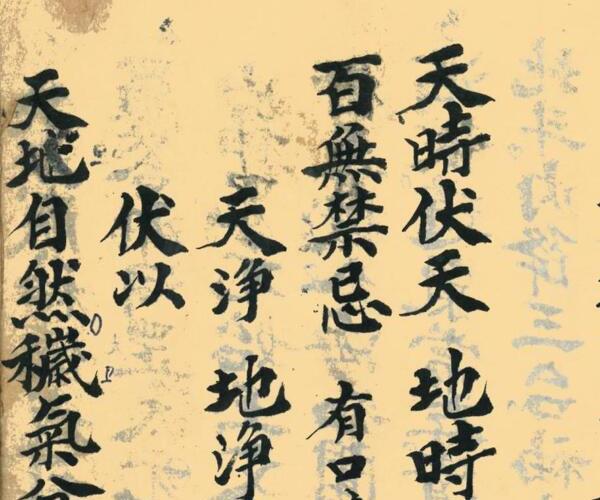 天時伏天 地時
百無禁忌 有口
天淨 地淨
伏以
天地自然穢氣分